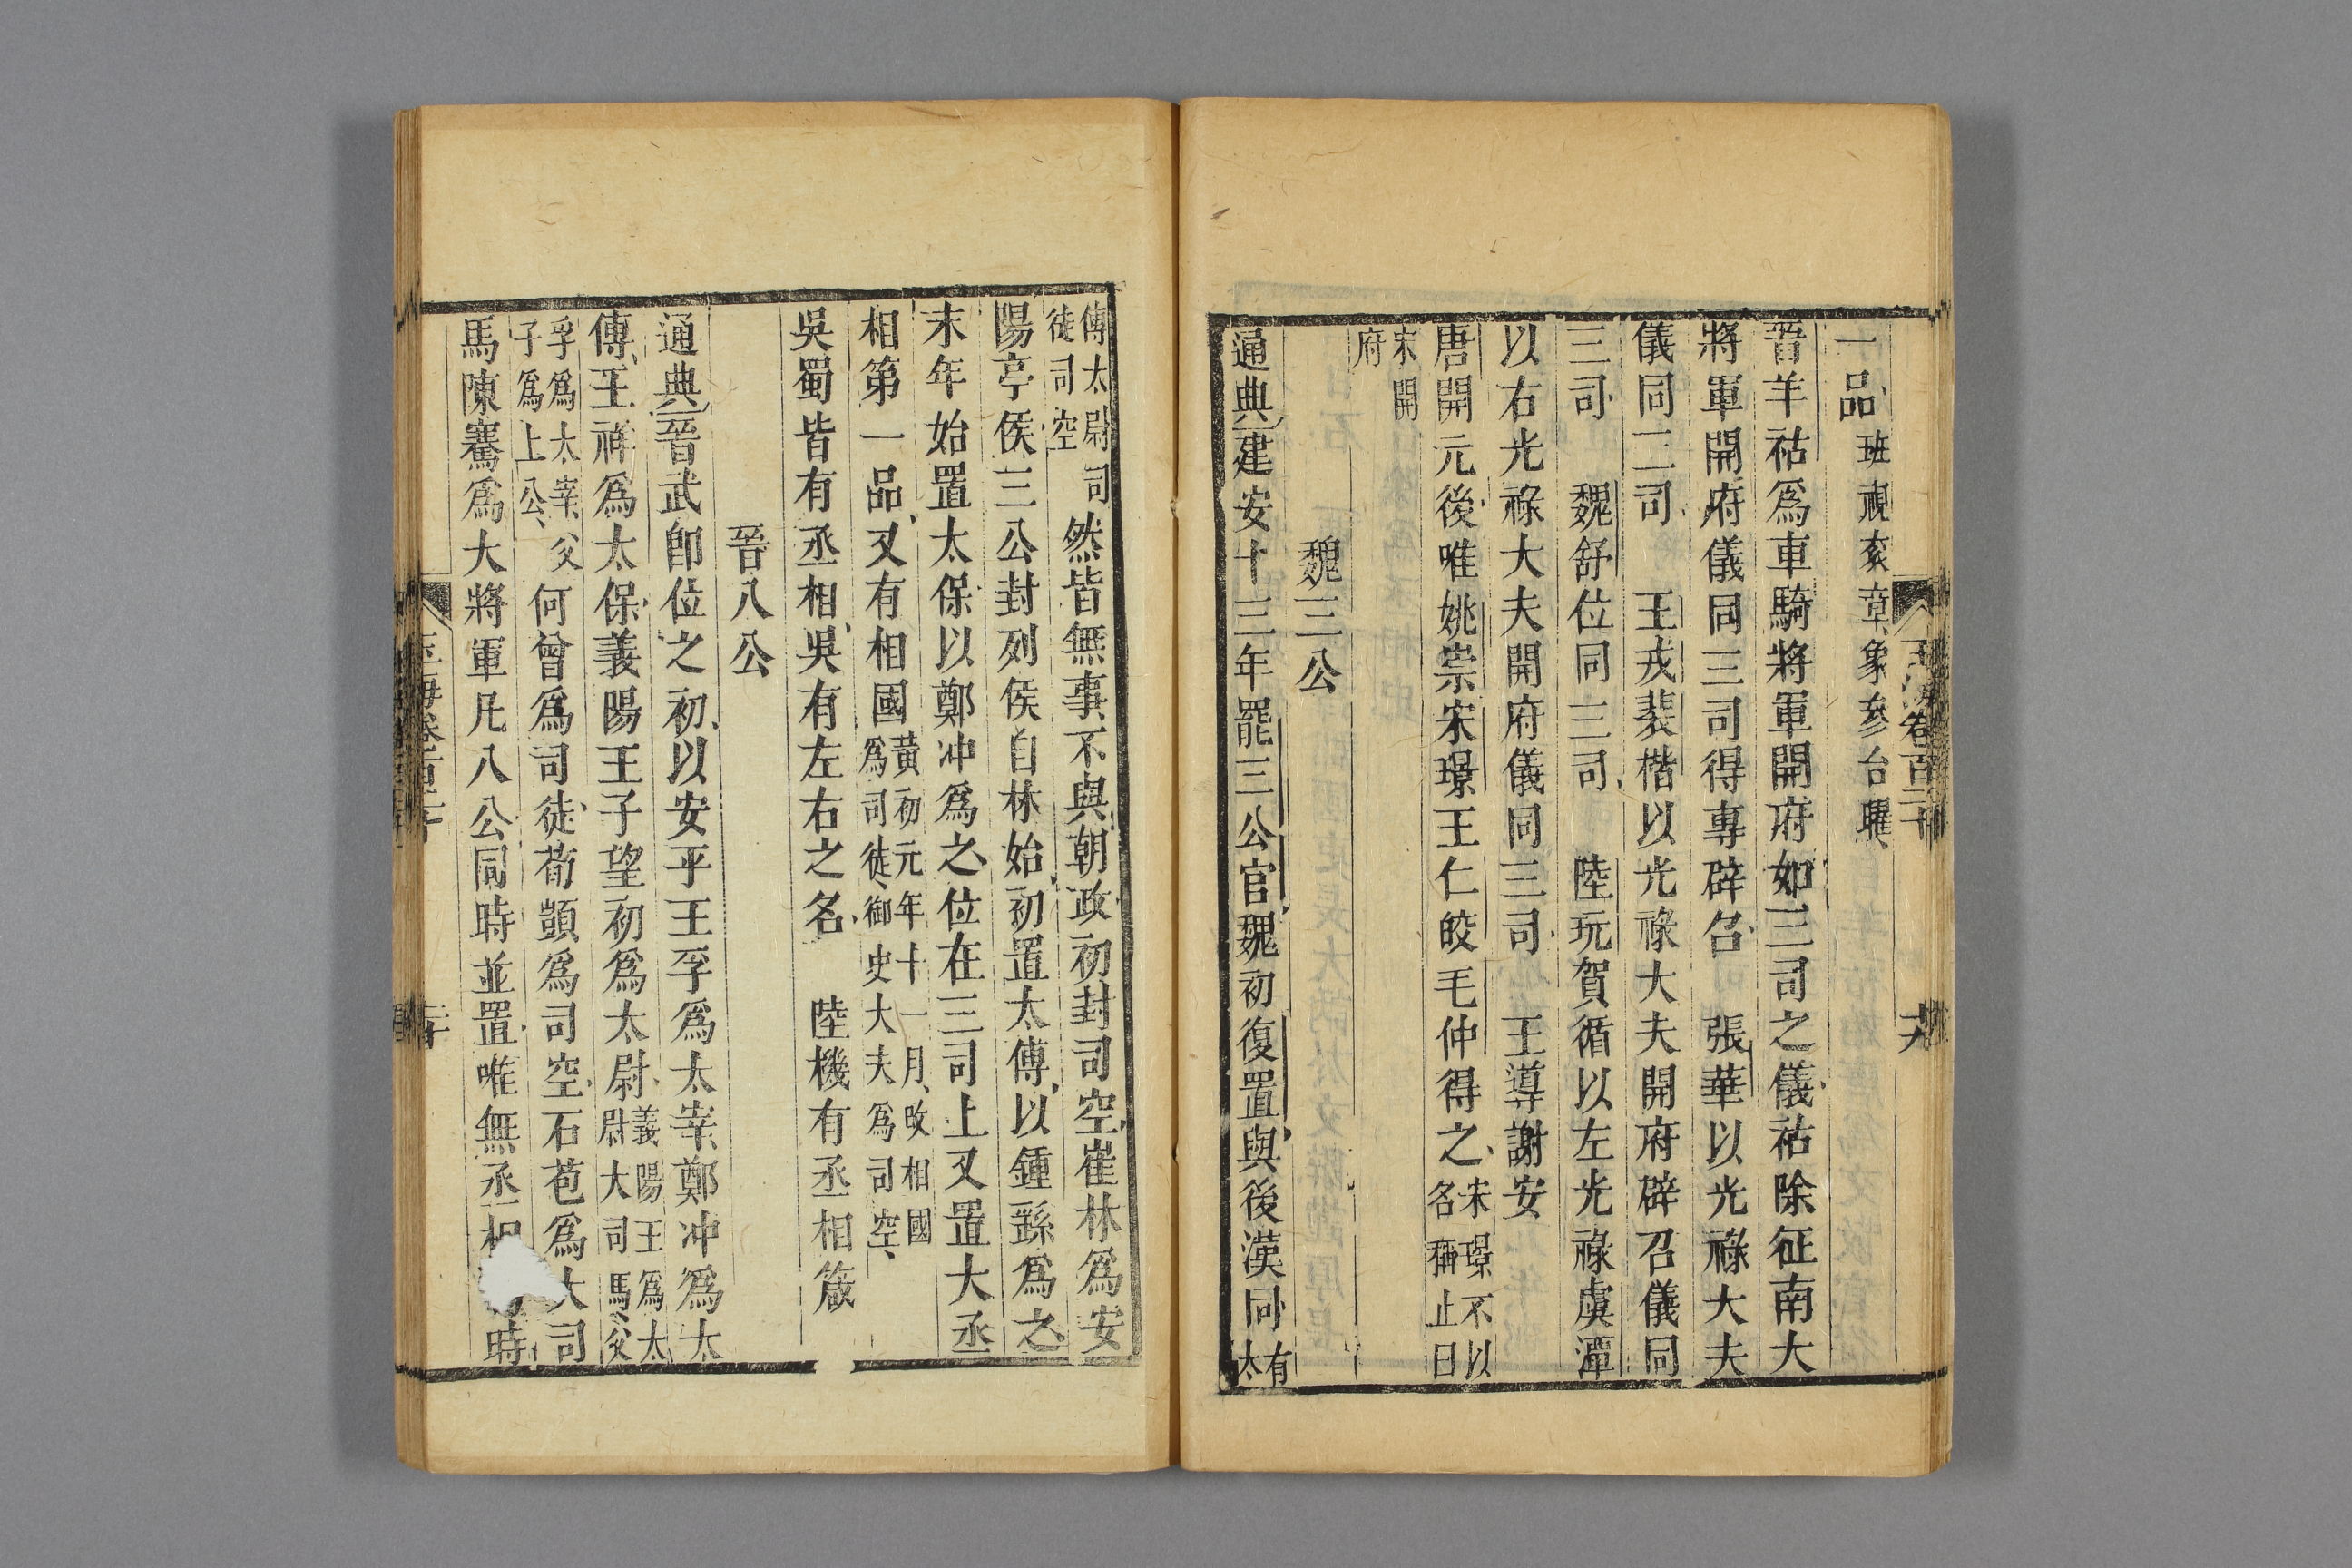 玉海卷百二十
十九
一品班視袞章象參台曜
晉羊祜爲車騎將軍開府如三司之儀祜除征南大
將軍開府儀同三司得專辟召　張華以光祿大夫
儀同三司　王戎裴楷以光祿大夫開府辟召儀同
三司　魏舒位同三司　陸玩賀循以左光祿虞潭
以右光祿大夫開府儀同三司　王導謝安
唐開元後唯姚崇宋璟王仁皎毛仲得之宋璟不以名稱止曰
宋開府
魏三公
通典建安十三年罷三公官魏初復置與後漢同有太
傅太尉司徒司空然皆無事不與朝政初封司空崔林爲安
陽亭侯三公封列侯自林始初置太傅以鍾繇爲之
末年始置太保以鄭冲爲之位在三司上又置大丞
相第一品又有相國黃初元年十一月改相國爲司徒御史大夫爲司空
吳蜀皆有丞相吳有左右之名　陸機有丞相箴
晉八公
通典晉武卽位之初以安平王孚爲太宰鄭冲爲太
傅王祥爲太保義陽王子望初爲太尉義陽王爲太尉大司馬父
孚爲太宰父子爲上公何曾爲司徒荀顗爲司空石苞爲大司
馬陳騫爲大將軍凡八公同時並置唯無丞相時
玉海卷百二十
二十